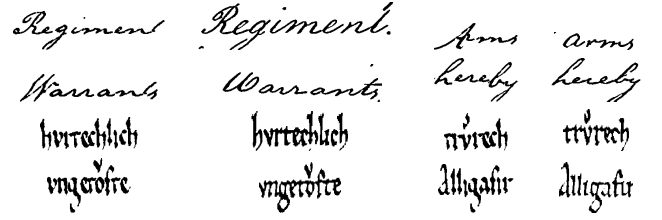 Regiment Regiment. Arms arms
Warrants Warrants. hereby hereby
hvrtechlich hvrtechlich trvͦrech trvͦrech
vngetoͮfte vngetoͮfte Alligasir Alligasir